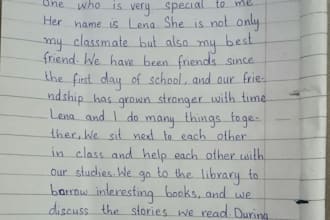 one who is very special to me
Her name is Lena. She is not only
my classmate but also my best
friend. We have been friends since
the first day of school, and our frie-
ndship has grown stronger with time
Lena and I do many things toge-
ther. We sit next to each other
in class and help each other with
our studies. We go to the library to
borrow interesting books, and we
discuss the stories we read. During